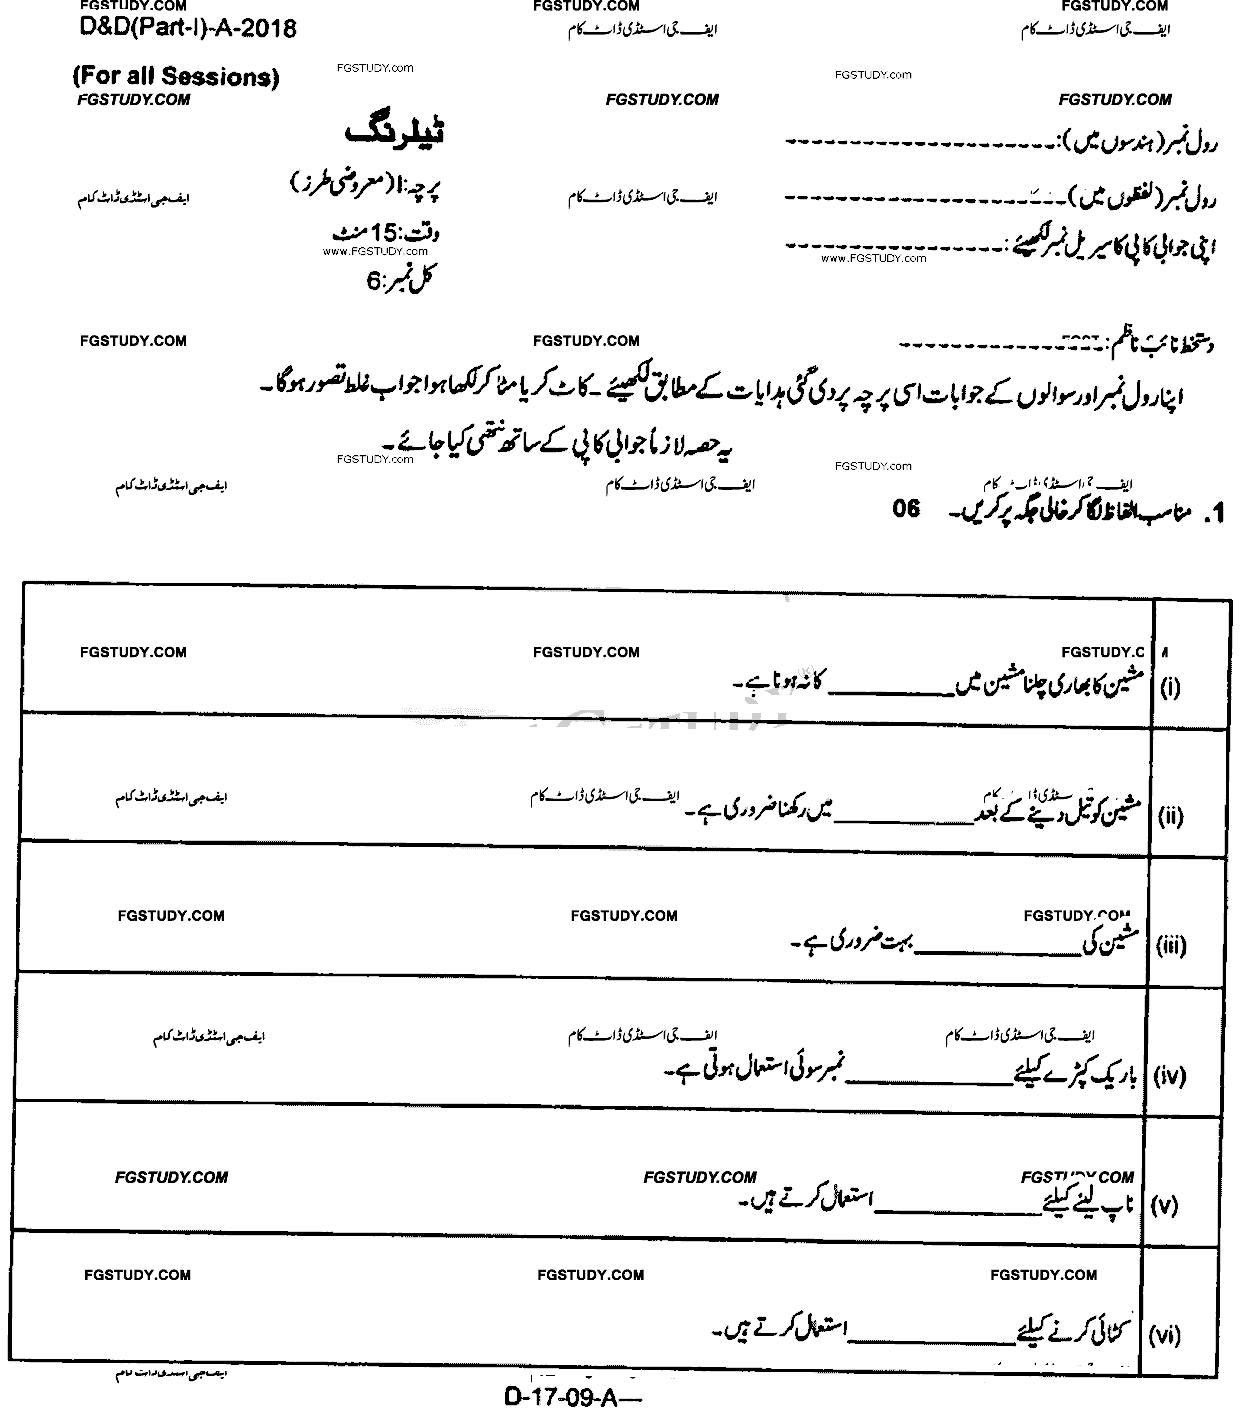 FGSTUDY.COM FGSTUDY.COM FGSTUDY.COM
D&D(Part-I)-A-2018 ایف جی اسٹڈی ڈاٹ کام ایف جی اسٹڈی ڈاٹ کام
(For all Sessions) FGSTUDY.com FGSTUDY.com
FGSTUDY.COM FGSTUDY.COM FGSTUDY.COM
ٹیلرنگ
رول نمبر (ہندسوں میں):--------------------
پرچہ:I (معروضی طرز)
رول نمبر (لفظوں میں)--------------------
ایف جی اسٹڈی ڈاٹ کام ایف جی اسٹڈی ڈاٹ کام
وقت:15 منٹ
اپنی جوابی کاپی کا سیریل نمبر لکھیئے:----------------
www.FGSTUDY.com www.FGSTUDY.com
کل نمبر:6
دستخط نائب ناظم:----------------
FGSTUDY.COM FGSTUDY.COM
اپنا رول نمبر اور سوالوں کے جوابات اسی پرچہ پر دی گئی ہدایات کے مطابق لکھیئے ۔ کاٹ کر یا مٹا کر لکھا ہوا جواب غلط تصور ہوگا۔
یہ حصہ لازماً جوابی کاپی کے ساتھ نتھی کیا جائے۔
FGSTUDY.com FGSTUDY.com
ایف جی اسٹڈی ڈاٹ کام ایف جی اسٹڈی ڈاٹ کام ایف جی اسٹڈی ڈاٹ کام
1. مناسب الفاظ لگا کر خالی جگہ پر کریں۔ 06
FGSTUDY.COM FGSTUDY.COM FGSTUDY.C
(i) مشین کا بھاری چلنا مشین میں __________ کا نہ ہونا ہے۔
ایف جی اسٹڈی ڈاٹ کام ایف جی اسٹڈی ڈاٹ کام اسٹڈی ڈا کام
(ii) مشین کو تیل دینے کے بعد __________ میں رکھنا ضروری ہے۔
FGSTUDY.COM FGSTUDY.COM FGSTUDY.COM
(iii) مشین کی __________ بہت ضروری ہے۔
ایف جی اسٹڈی ڈاٹ کام ایف جی اسٹڈی ڈاٹ کام ایف جی اسٹڈی ڈاٹ کام
(iv) باریک کپڑے کیلئے __________ نمبر سوئی استعمال ہوتی ہے۔
FGSTUDY.COM FGSTUDY.COM FGSTUDY.COM
(v) ناپ لینے کیلئے __________ استعمال کرتے ہیں۔
FGSTUDY.COM FGSTUDY.COM FGSTUDY.COM
(vi) کٹائی کرنے کیلئے __________ استعمال کرتے ہیں۔
ایف جی اسٹڈی ڈاٹ کام
D-17-09-A—